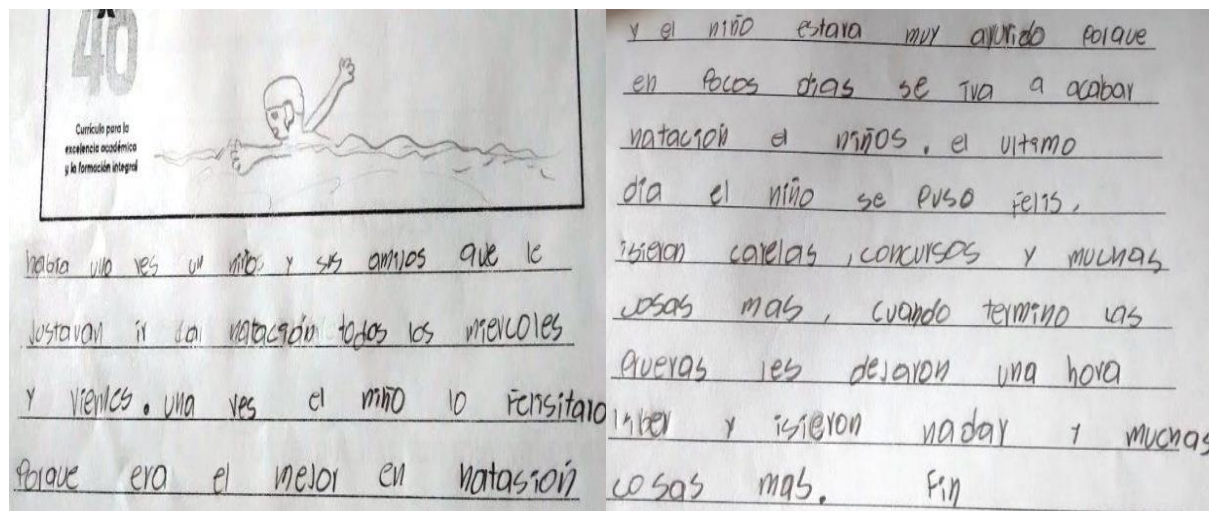 40
Currículo para la
excelencia académica
y la formación integral
habia una ves un niño y sus amijos que le
justavan ir a la natación todos los miercoles
y viernes. una ves el niño lo Felisitaro
Porque era el mejor en natasión
y el niño estara muy ayurido Porque
en Pocos dias se iva a acabar
natación a niños. el ultimo
día el niño se Puso Felis,
isieron carelas, concursos y muchas
cosas mas, cuando termino las
Pueras les dejaron una hora
y isieron nadar y muchas
cosas mas. Fin